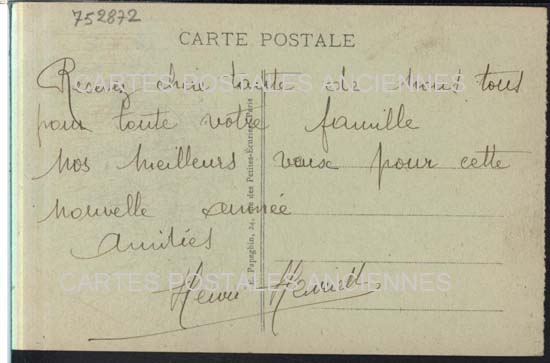 752872
CARTE POSTALE
Recevez chère tante de nous tous
pour toute votre famille
nos meilleurs vœux pour cette
nouvelle année
Amitiés
Henri
CARTES POSTALES ANCIENNES
CARTES POSTALES ANCIENNES
E. Papeghin, 24, Rue des Petites-Écuries, Paris